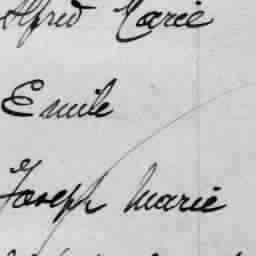 Alfred Marie
Emile
Joseph Marie